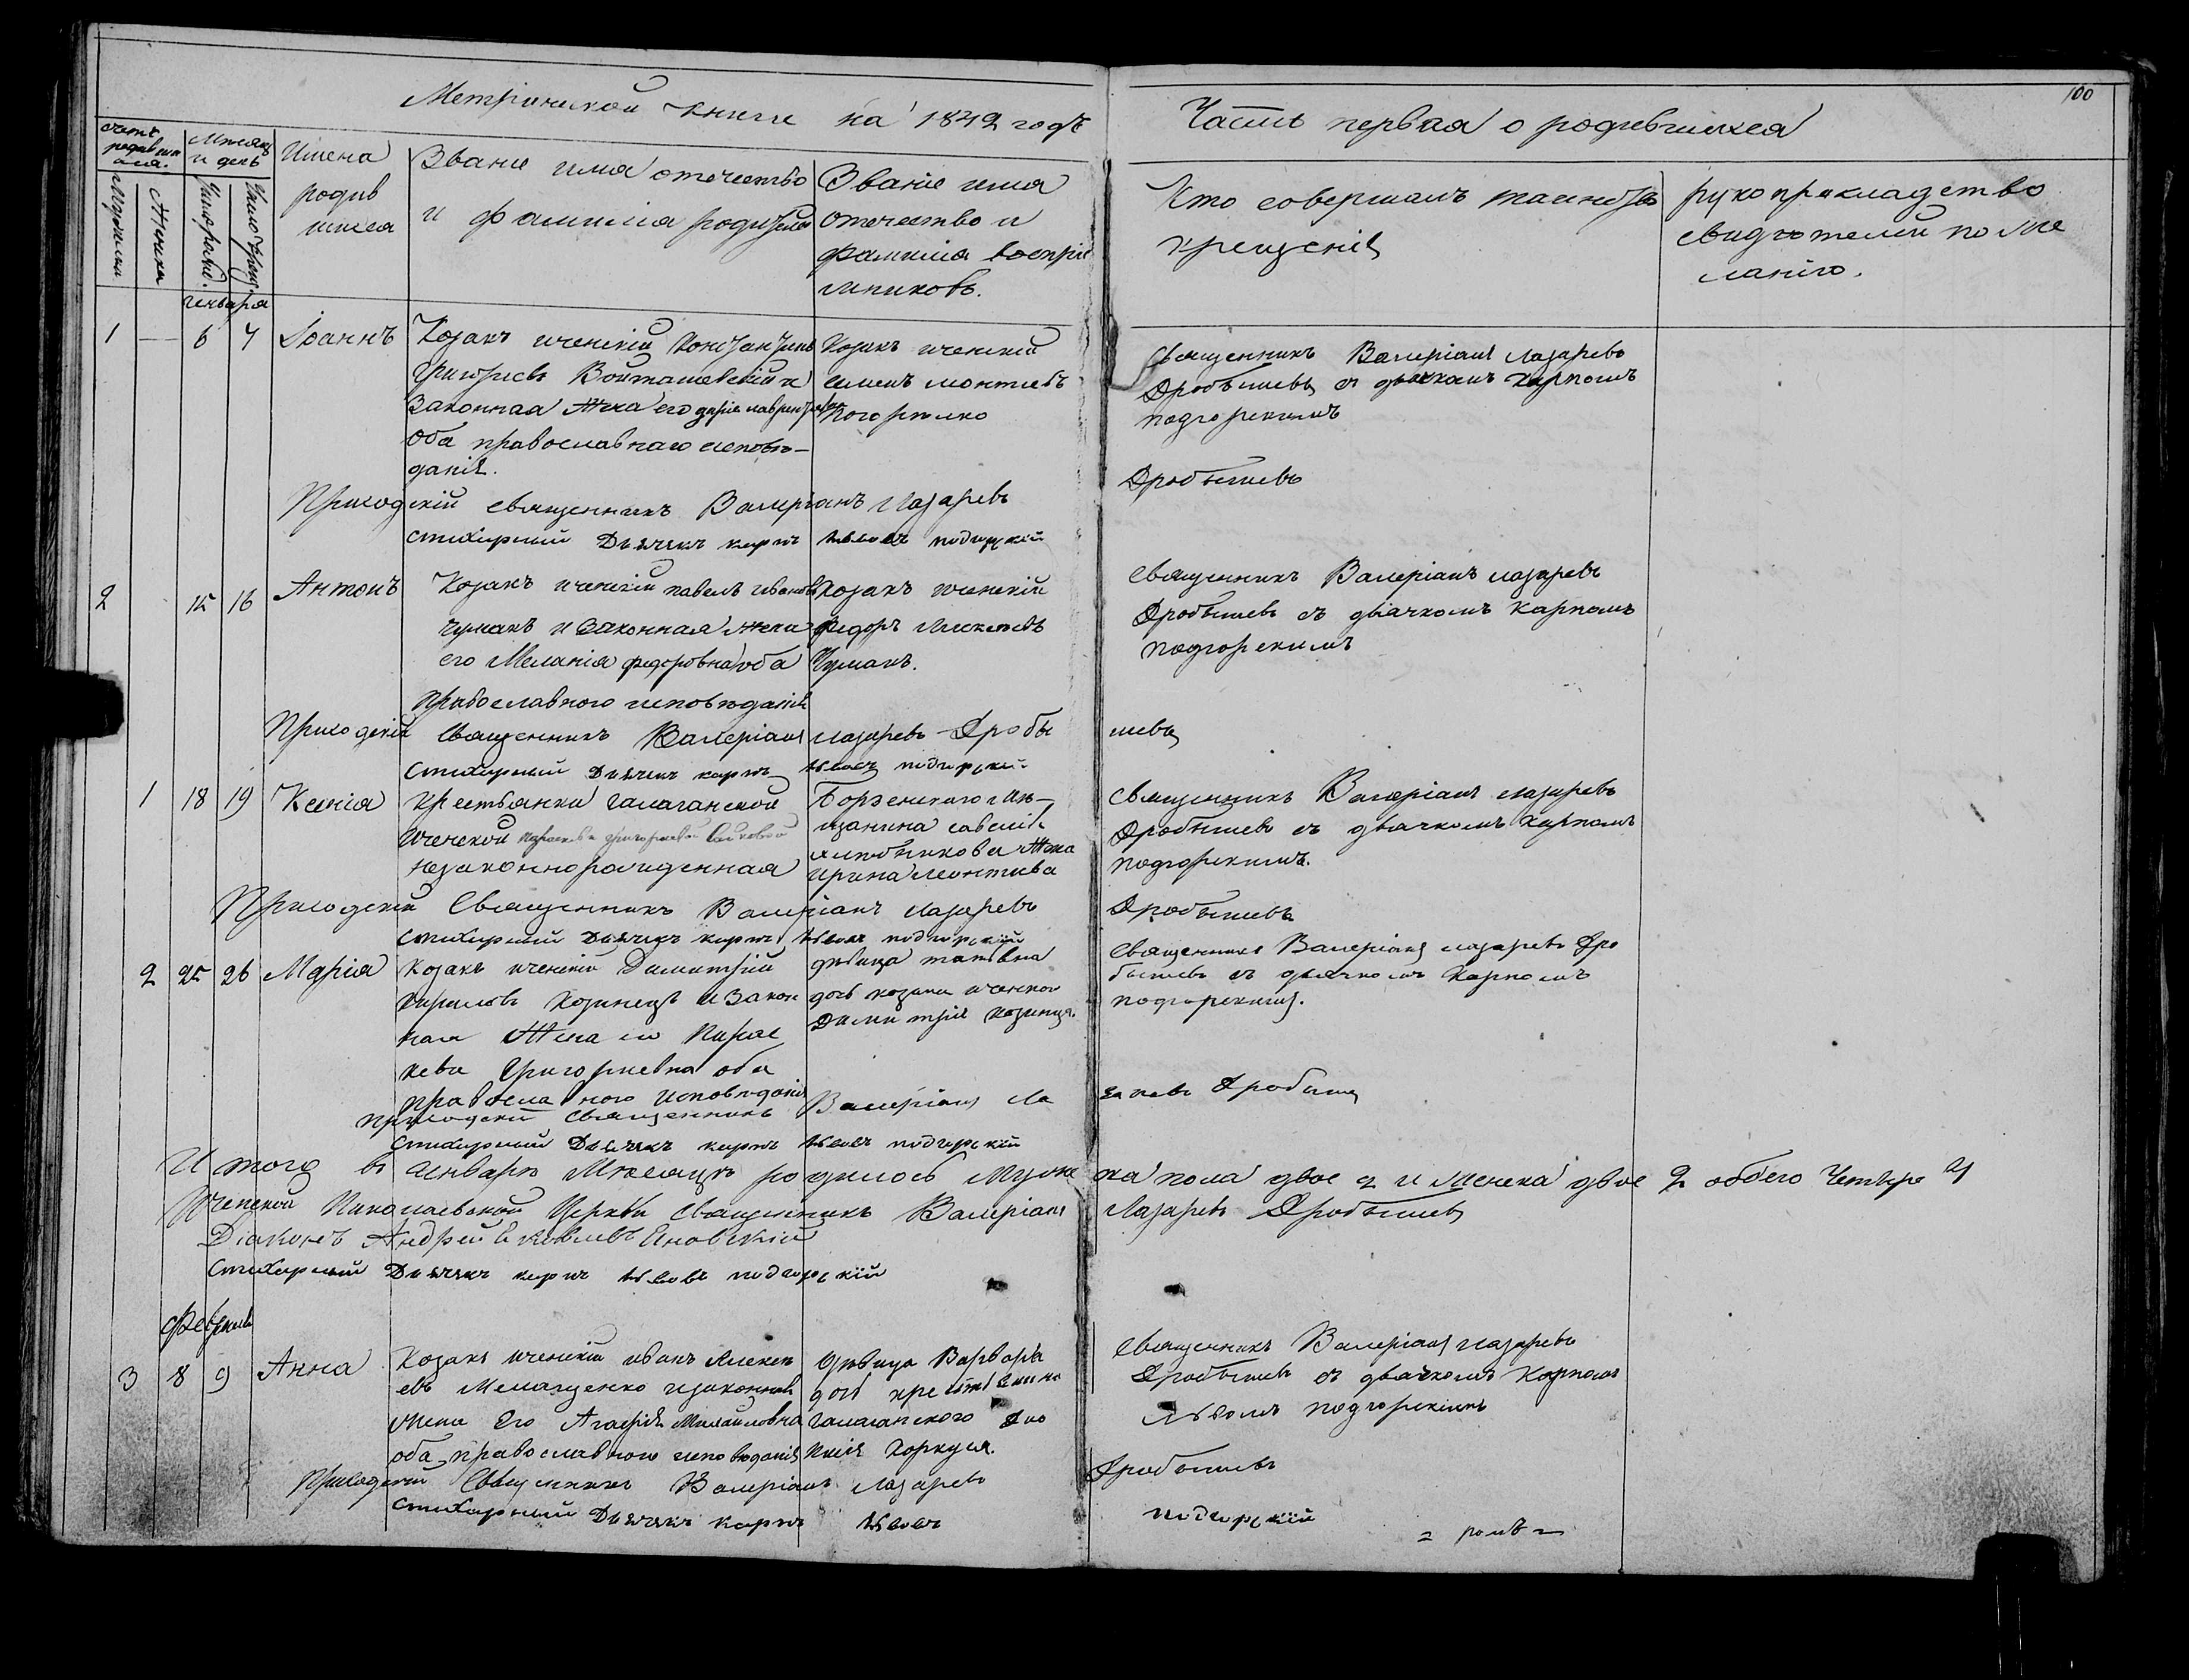 100
Метрической книги на 1842 годъ
Часть первая о родившихся
счетъ родившихся.
Мужеска
Женска
Месяцъ и день
Число рожд.
Число крещ.
Имена
родив
шихся
Званіе имя отечество
и фамилія родителей
Званіе имя
отечество и
фамилія воспріе
мниковъ.
Кто совершалъ таинство
крещенія
рукоприкладство
свидѣтелей по же
ланію.
генваря
1 — 6 7 Іоаннъ
Козакъ иченскій Константинъ
Григорьевъ Войташевскій и
Законная жена его дарія лаврентьева
Оба православнаго исповѣ-
данія.
Козакъ иченскій
симеонъ леонтьевъ
Погорѣлко
Священникъ Валеріанъ лазаревъ
Дробышевъ съ дьячкомъ карпомъ
подгорскимъ
Приходскій священникъ Валеріанъ Лазаревъ
Дробышевъ
стихарный Дьячекъ карпъ львовъ подгорскій
2 15 16 Антонъ
Козакъ иченскій павелъ ивановъ
чумакъ и законная жена
его Меланія федоровна оба
православного исповѣданія
Козакъ иченскій
федоръ Алексѣевъ
Чумакъ.
Священникъ Валеріанъ лазаревъ
Дробышевъ съ дьячкомъ карпомъ
подгорскимъ
Приходскій Священникъ Валеріанъ лазаревъ Дробы
шевъ
Стихарный Дьячекъ карпъ львовъ подгорскій
1 18 19 Ксенія
Крестьянки галаганской
иченской
незаконнорожденная
Борзенского мѣ-
щанина савелія
жена
ирина леонтьева
Священникъ Валеріанъ лазаревъ
Дробышевъ съ дьячкомъ карпомъ
подгорскимъ.
Приходскій Священникъ Валеріанъ лазаревъ
Дробышевъ
стихарный Дьячекъ карпъ львовъ подгорскій
2 25 26 Марія
Козакъ иченскій Димитрій
кириловъ Козинецъ и Закон
ная Жена его Парас
кева Григорьевна оба
православного исповѣданія
дѣвица татьяна
дочь козака иченского
Димитрія козинца.
Священникъ Валеріанъ лазаревъ Дро
бышевъ съ дьячкомъ Карпомъ
подгорскимъ.
приходскій Священникъ Валеріанъ Ла
заревъ Дробышевъ
Стихарный Дьячекъ карпъ львовъ подгорскій
Итого въ генварѣ Мѣсяцѣ родилось муже
ска пола двое 2 и женска двое 2 обоего Четыре 4
Иченской Николаевской Церкви Священникъ Валеріанъ
Лазаревъ Дробышевъ
Діаконъ Андрей Яковлевъ Яновскій
Стихарный Дьячекъ карпъ львовъ подгорскій
февраль
3 8 9 Анна
Козакъ иченскій иванъ Алексѣ
евъ и законная
жена Его Агафія Михайловна
оба православного исповѣданія
Дѣвица Варвара
дочь крестьянина
галаганского
Священникъ Валеріанъ лазаревъ
Дробышевъ съ дьячкомъ Карпомъ
львовымъ подгорскимъ
Приходскій Священникъ Валеріанъ Лазаревъ
Дробышевъ
стихарный Дьячекъ карпъ львовъ
подгорскій